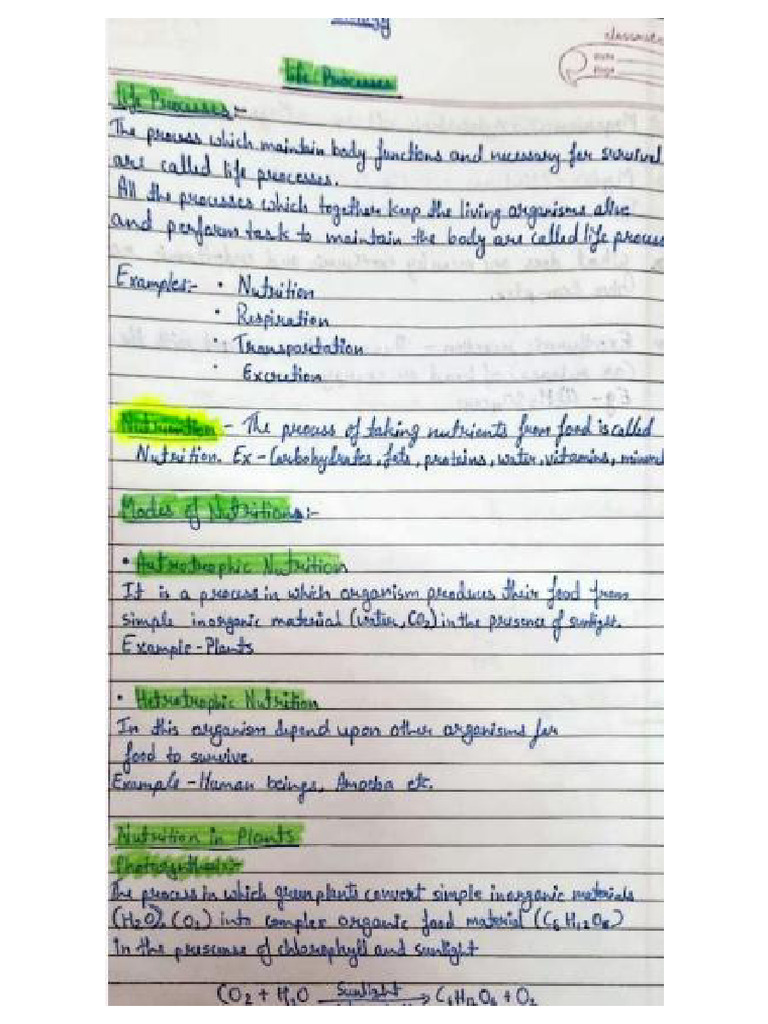 Biology
classmate
Date
Page
Life Processes
Life Processes:-
The process which maintain body functions and necessary for survival
are called life processes.
All the processes which together keep the living organisms alive
and perform task to maintain the body are called life process
Examples:- • Nutrition
• Respiration
• Transportation
• Excretion
Nutrition - The process of taking nutrients from food is called
Nutrition. Ex - Carbohydrates, fats, proteins, water, vitamins, mineral
Modes of Nutritions:-
• Autrotrophic Nutrition
It is a process in which organism produces their food from
simple inorganic material (water, CO2) in the presence of sunlight.
Example - Plants
• Hetrotrophic Nutrition
In this organism depend upon other organisms for
food to survive.
Example - Human beings, Amoeba etc.
Nutrition in Plants
Photosynthesis:-
The process in which green plants convert simple inorganic materials
(H2O), (CO2) into complex organic food material (C6H12O6)
in the prescense of chlorophyll and sunlight
CO2 + H2O Sunlight → C6H12O6 + O2